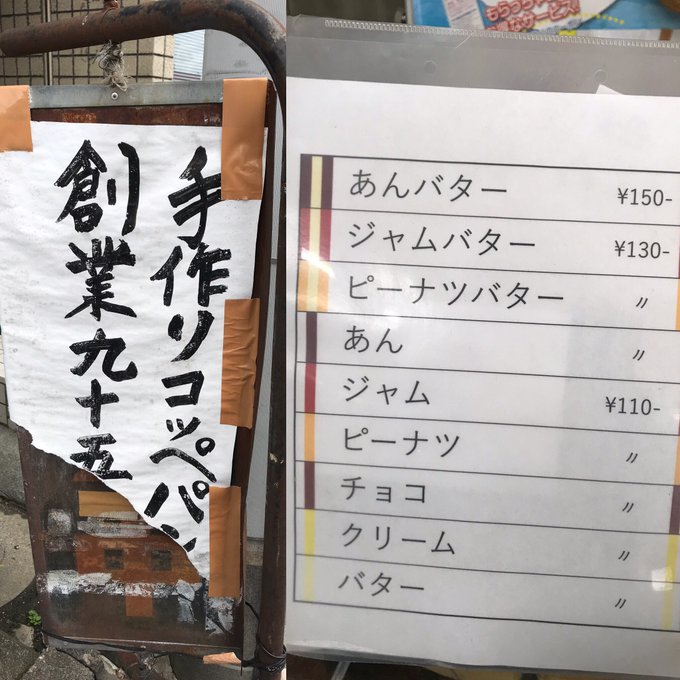 手作りコッペパン
創業九十五
あんバター ¥150-
ジャムバター ¥130-
ピーナツバター 〃
あん 〃
ジャム ¥110-
ピーナツ 〃
チョコ 〃
クリーム 〃
バター 〃